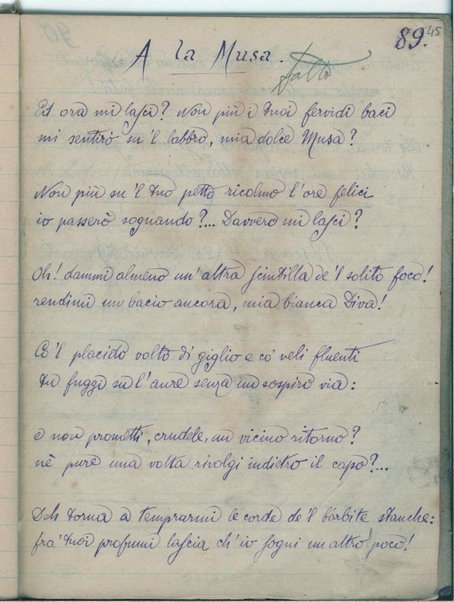 89.
45
A la Musa.
fatto
Ed ora mi lasci? Non più i tuoi fervidi baci
mi sentirò su 'l labbro, mia dolce Musa?
Non più su 'l tuo petto ricolmo l'ore felici
io passerò sognando?... Davvero mi lasci?
Oh! dammi almeno un'altra scintilla de 'l solito foco!
rendimi un bacio ancora, mia bianca Diva!
Co 'l placido volto di giglio e co' veli fluenti
tu fuggi su l'aure senza un sospiro via:
e non prometti, crudele, un vicino ritorno?
nè pure una volta rivolgi indietro il capo?...
Deh torna a temprarmi le corde de 'l bàrbito stanche:
fra' tuoi profumi lascia ch'io sogni un altro poco!